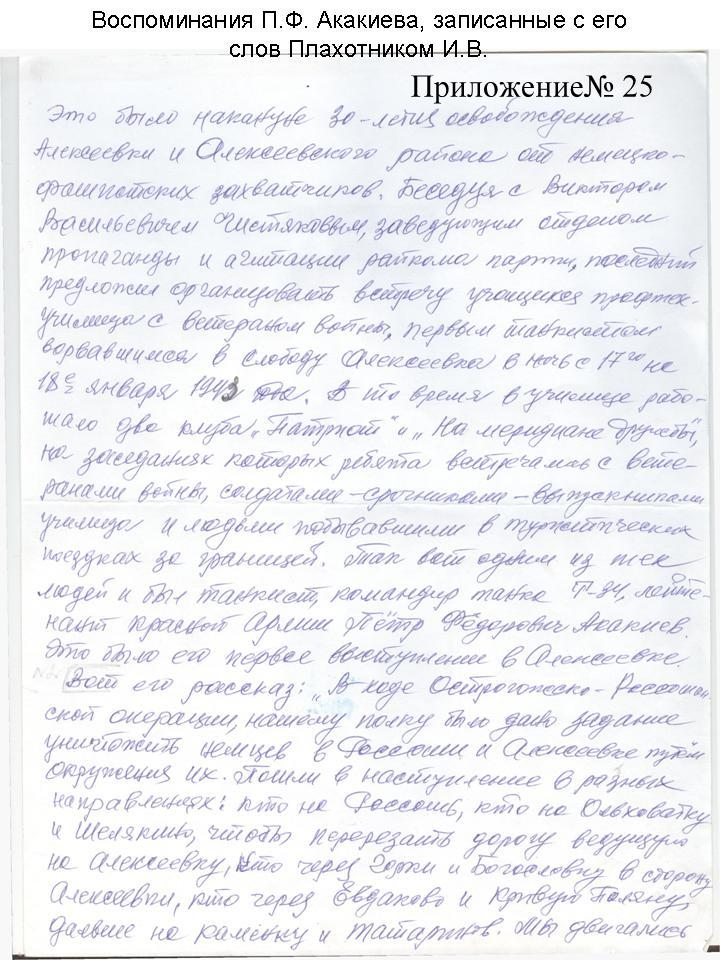 Воспоминания П.Ф. Акакиева, записанные с его
слов Плахотником И.В.
Приложение№ 25
Это было накануне 30-летия освобождения
Алексеевки и Алексеевского района от немецко-
фашистских захватчиков. Беседуя с Виктором
Васильевичем Чистяковым, заведующим отделом
пропаганды и агитации райкома партии, последний
предложил организовать встречу учащихся профтех-
училища с ветераном войны, первым танкистом
ворвавшимся в слободу Алексеевка в ночь с 17го на
18е января 1943 . В то время в училище рабо-
тало два клуба „Патриот" и „На меридиане дружбы",
на заседаниях которых ребята встречались с вете-
ранами войны, солдатами-срочниками-выпускниками
училища и людьми побывавшими в туристических
поездках за границей. Так вот одним из тех
людей и был танкист, командир танка Т-34, лейте-
нант Красной Армии Пётр Фёдорович Акакиев.
Это было его первое выступление в Алексеевке.
Вот его рассказ: „В ходе Острогожско-Россошан
ской операции, нашему полку было дано задание
уничтожить немцев в Россоши и Алексеевке путём
окружения их. Пошли в наступление в разных
направлениях: кто на Россошь, кто на Ольховатку
и Шелякино, чтобы перерезать дорогу ведущую
на Алексеевку, кто через и Богословку в сторону
Алексеевки, кто через Евдаково и Кривую Поляну,
далее на Каменку и Татарино. Мы двигались